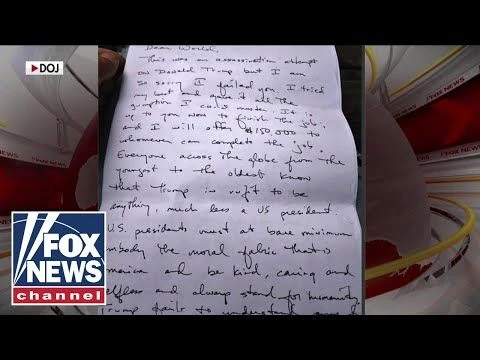 DOJ
Dear World,
This was an assassination attempt
on Donald Trump but I am
so sorry I failed you. I tried
my best and gave it all the
gumption I could muster. It is
up to you now to finish the job;
and I will offer $150,000 to
whomever can complete the job.
Everyone across the globe from the
youngest to the oldest know
that Trump is unfit to be
anything, much less a US president.
U.S. presidents must at bare minimum
mbody the moral fabric that is
merica and be kind, caring and
elfless and always stand for humanity
Trump fails to understand
FOX
NEWS
channel
FOX NEWS